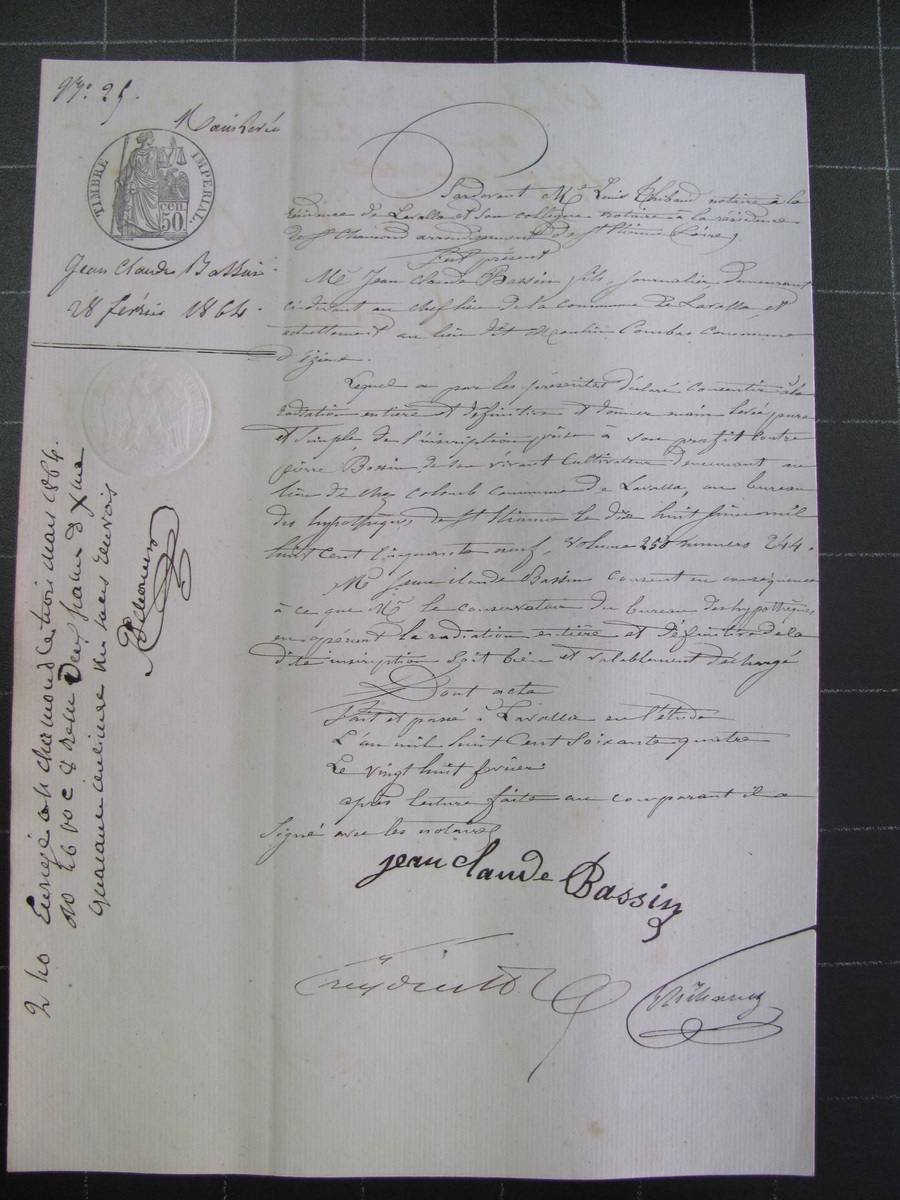 N.º 25
Mainlevée
TIMBRE IMPÉRIAL
50 cen.
Jean Claude Bassin
28 février 1864.
Pardevant Me Louis Thibaud notaire à la
résidence de Lavalla et son collègue notaire à la résidence
de St Chamond arrondissement de St Etienne Loire,
Fut présent
Mr Jean Claude Bassin fils, journalier, demeurant
ci-devant au chef lieu de la commune de Lavalla, et
actuellement au lieu dit Moulin Combat commune
d'Izieux.
Lequel a par les présentes déclaré consentir à la
radiation entière et définitive et donner main levée pure
et simple de l'inscription prise à son profit contre
pierre Bassin de son vivant cultivateur demeurant au
lieu de chez colomb commune de Lavalla, au bureau
des hypothèques de St Etienne le dix huit mil
huit cent cinquante neuf, volume 250 numéro 244.
Mr Jean claude Bassin consent en conséquence
à ce que Mr le conservateur du bureau des hypothèques
en opérant la radiation entière et définitive de la
dite inscription soit bien et valablement déchargé
Dont acte
Fait et passé à Lavalla en l'étude
L'an mil huit cent soixante quatre
Le vingt huit février
après lecture faite au comparant il a
signé avec les notaires
jean claude Bassin
2 40 Enregé à St chamond le trois mars 1864.
no 26 vo c 8 Reçu Deux francs & Xme
quarante centimes sans renvois